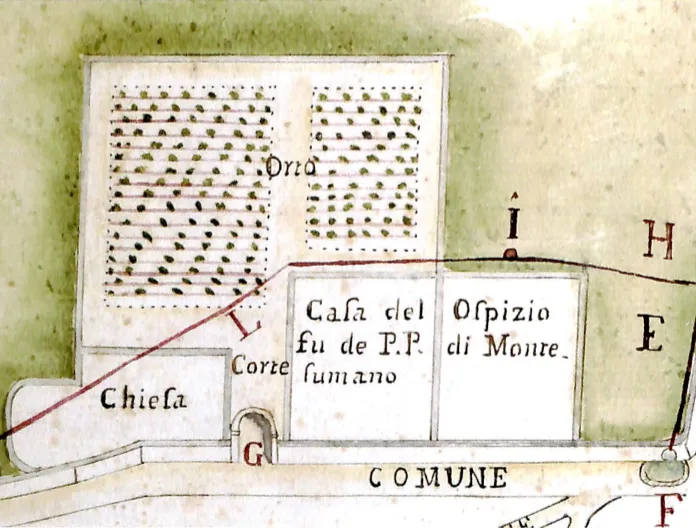 Orto
I
H
E
L
Caſa del
fu de P.P.
ſumano
Oſpizio
di Monte-
Corte
Chieſa
G
COMUNE
F